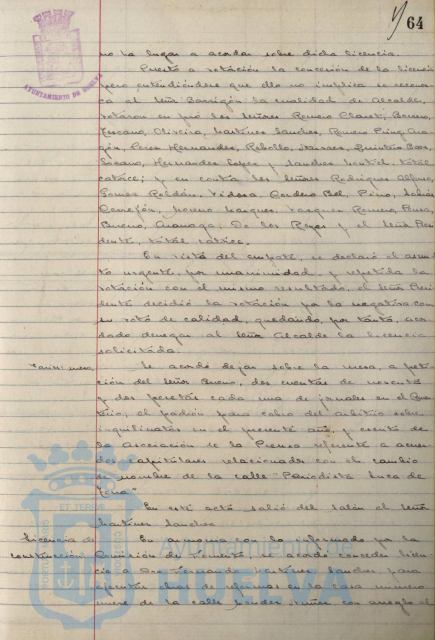 64
AYUNTAMIENTO DE HUELVA
no ha lugar a acordar sobre dicha licencia.
Puesta a votación la concesión de la licencia
pero entendiéndose que ello no implica se recono
ca al Señor Barrigón la cualidad de Alcalde,
votaron en pró los Señores Romero Claret, Borrero,
Oliveira, Martínez Sánchez, Romero
Perez Hernandez, Rebollo, Quintero Baez,
Lozano, Hernandez Lopez y Sanchez total
catorce; y en contra los Señores Rodriguez Alfonso,
Gomez Roldán, Tejera, Cordero Bel, Pino,
Moreno Marquez, Vazquez Romero,
Bueno, De los Reyes y el Señor Presi
dente, total catorce.
En vista del empate, se declaró el asun
to urgente, por unanimidad, y repetida la
votación con el mismo resultado, el Señor Presi
dente decidió la votación por la negativa con
su voto de calidad, quedando, por tanto, acor
dado denegar al Señor Alcalde la licencia
solicitada.
Se acordó dejar sobre la mesa, a peti
ción del Señor Bueno, dos cuentas de noventa
y dos pesetas cada una de jornales en el
al padrón para cobro del arbitrio sobre
inquilinatos en el presente año, y escrito de
la Asociación de la Prensa referente a acuer
dos capitulares relacionados con el cambio
de nombre de la calle "Periodista Luca de
Tena"
En este acto salió del salón el Señor
Martínez Sánchez
Licencia de
construcción
En armonia con lo informado por la
Comisión de Fomento, se acordó conceder licen
cia a Don Fernando Martínez Sanchez para
ejecutar obras de reformas en la casa número
nueve de la calle Mendez Nuñez con arreglo al
Ayuntamiento de
HUELVA